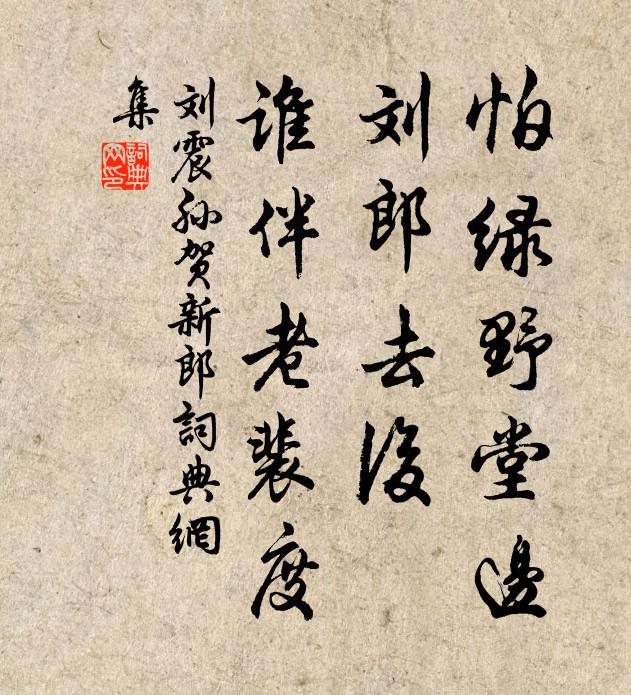 怕绿野堂邊
刘郎去後
谁伴老裴度
刘震孙贺新郎詞典網
集
詞典
网印